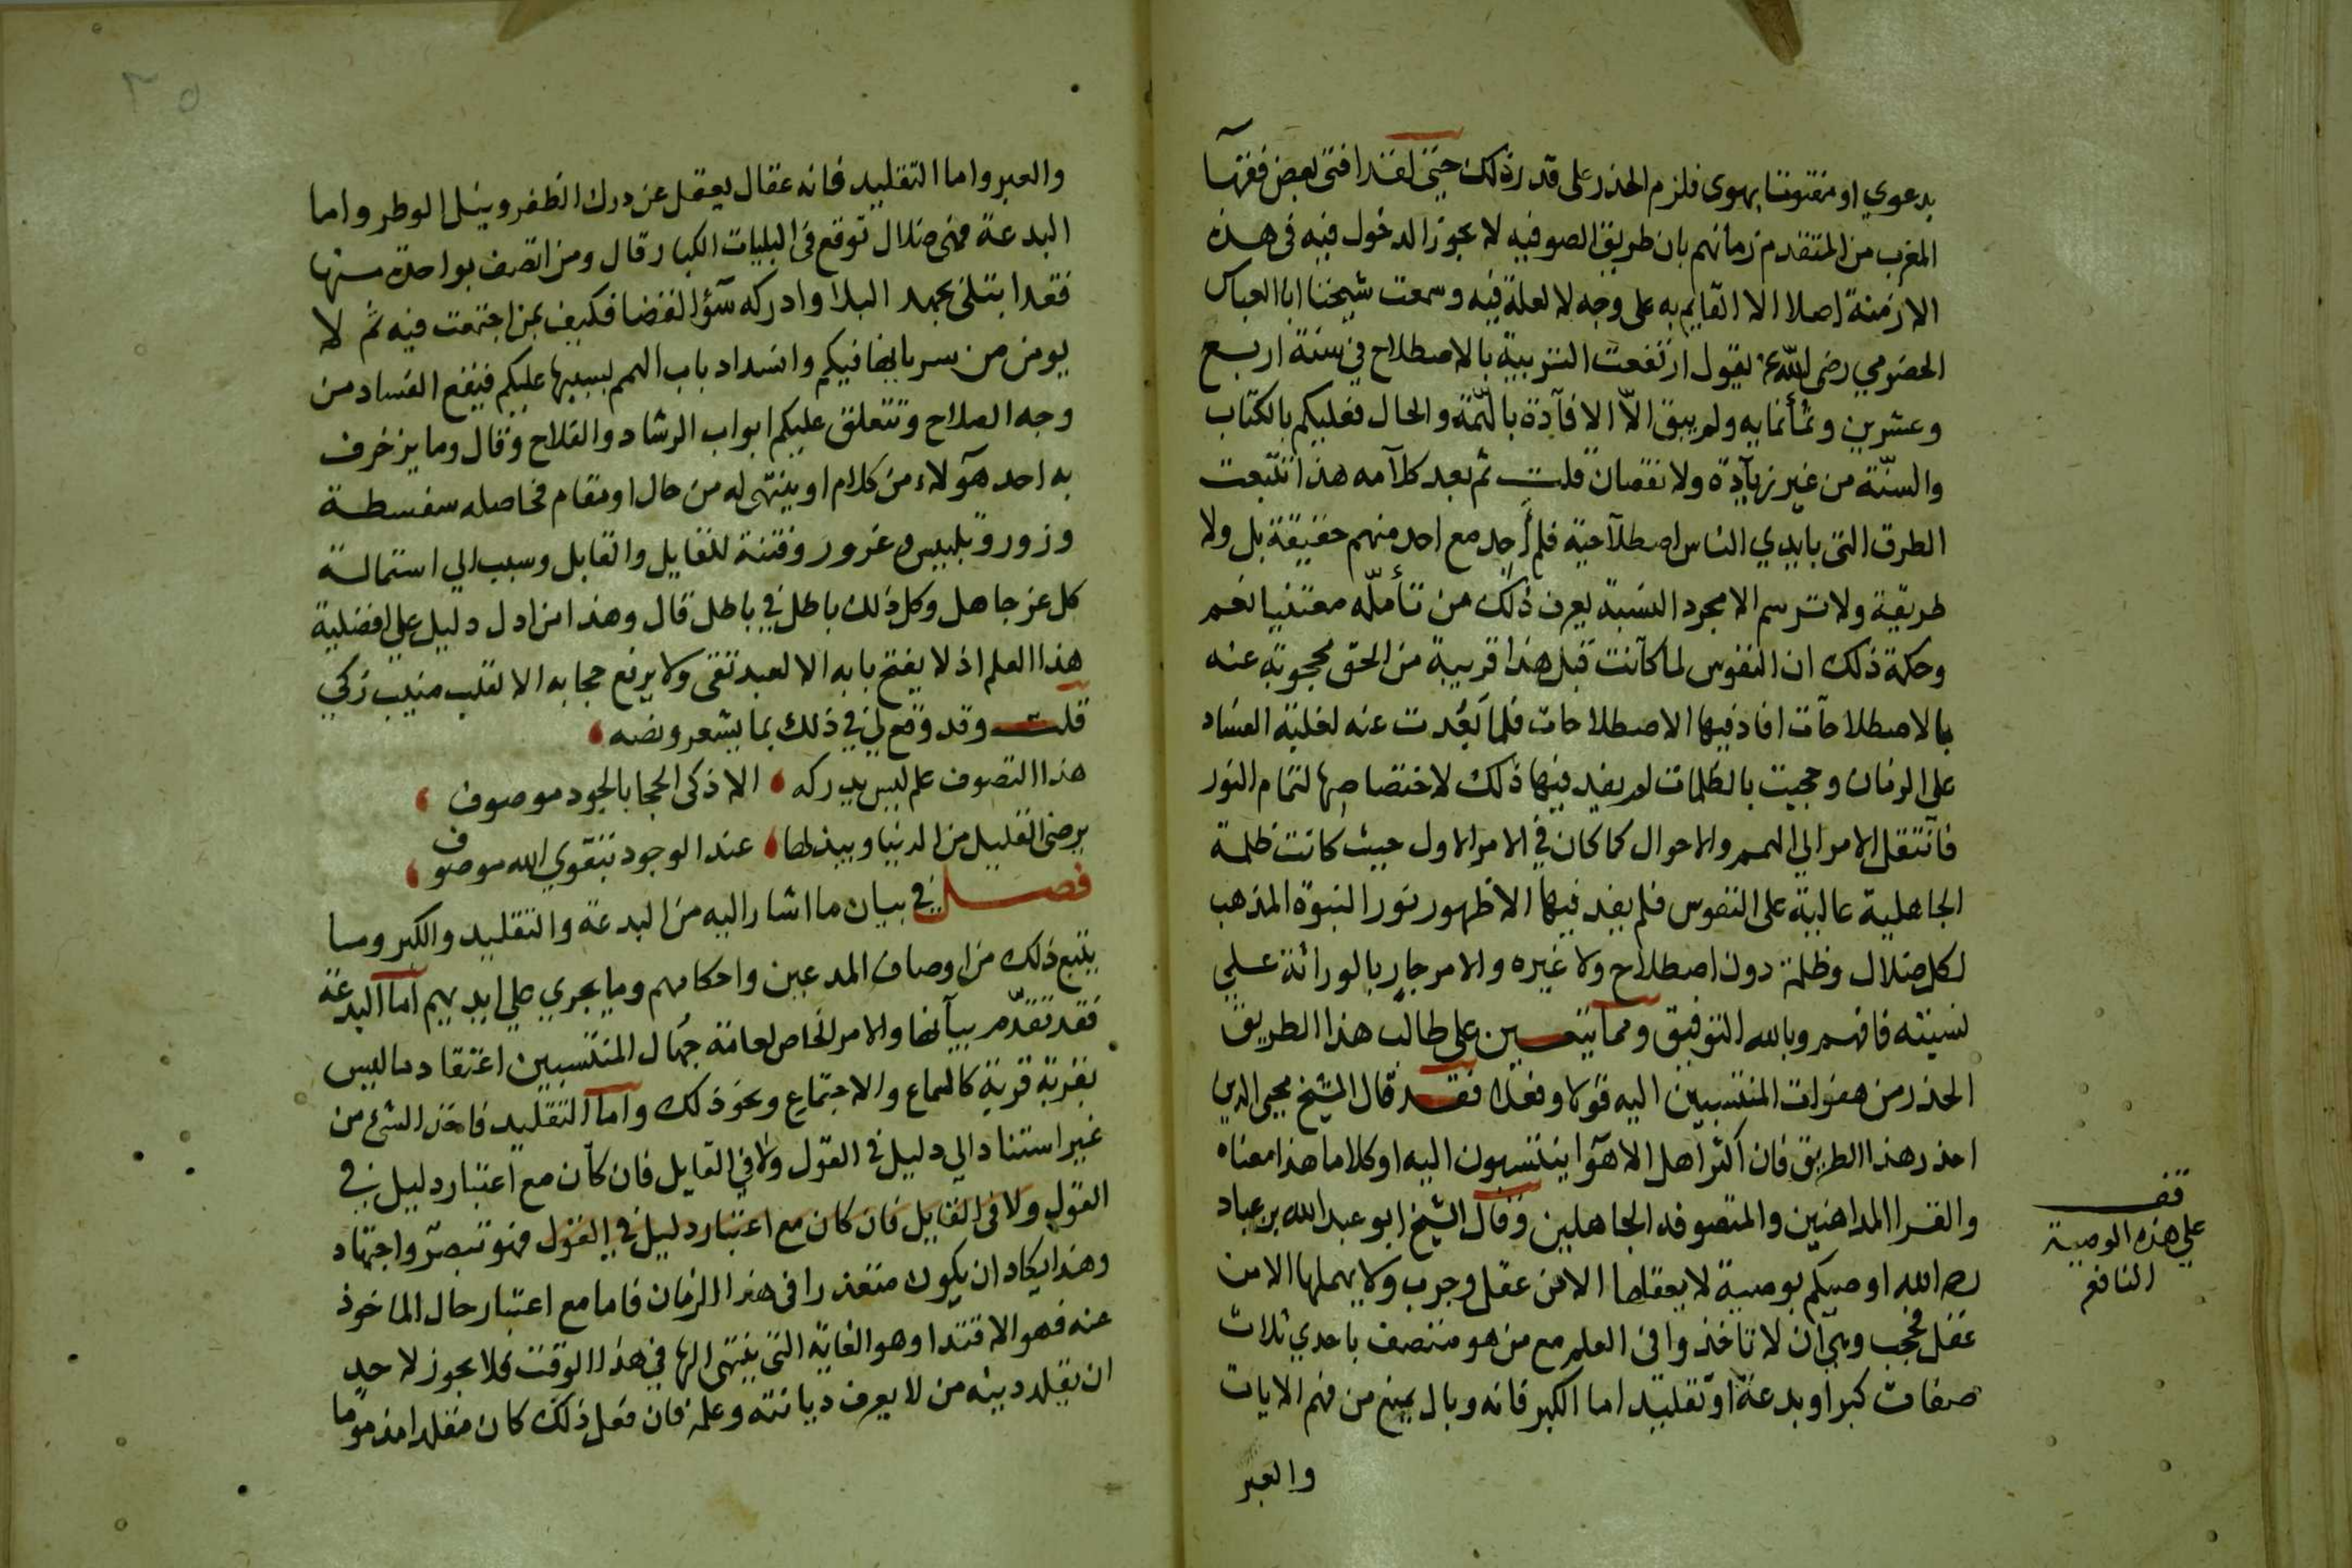 بدعوي او مفتونا بهوى فلزم الحذر على قدر ذلك حتى لقد افتى بعض فقهآ
المغرب من المتقدم زمانهم بان طريق الصوفيه لا يجوز الدخول فيه فى هذه
الازمنة اصلا الا القايم به على وجه لا لعلة فيه وسمعت شيخنا ابا العباس
الحضرمي رضى الله عنه يقول ارتفعت التربية بالاصطلاح في سنة اربع
وعشرين وثمأنمايه ولم يبق الاّ الافآدة بالهّمة والحال فعليكم بالكتاب
والسنّة من غير زيآدة ولا نقصان قلت ثم بعد كلآمه هذا تتبعت
الطرق التى بايدي الناس اصطلآحية فلم أجد مع احد منهم حقيقة بل ولا
طريقة ولا ترسم الا مجرد النسبة يعرف ذلك من تأملّه معتنيا نعم
وحكمة ذلك ان النفوس لما كآنت قبل هذا قريبة من الحق محجوبة عنه
بالاصطلاحآت افاد فيها الاصطلاحات فلما بَعُدت عنه لغلبة الفساد
على الزمان وحجبت بالظلمات لم يفيد فيها ذلك لاختصاصها لتمام النور
فآنتقل الامر الي الهمم والاحوال كما كان في الامر الاول حيث كانت ظلمة
الجاهلية غالبة على النفوس فلم يفيد فيها الا ظهور نور النبوة المذهب
لكل ضلال وظلمة دون اصطلاح ولا غيره والامر جارٍ بالوراثة علي
نسبته فافهم وبالله التوفيق ومما يتعين على طالب هذا الطريق
الحذر من هفوات المنتسبين اليه قولا وفعلا فقد قال الشيخ محيى الدين
احذر هذا الطريق فان اكثر اهل الاهوآ ينتسبون اليه او كلاما هذا معناه
والقرا المداهنين والمتصوفه الجاهلين وقال الشيخ ابو عبد الله بن عباد
رحمه الله اوصيكم بوصية لا يعقلها الا من عقل وجرب ولا يهملها الا من
غفل فحجب وهي آن لا تاخذوا فى العلم مع من هو متصف باحدي ثلاث
صفات كبر او بدعة او تقليد اما الكبر فانه وبال يمنع من فهم الايات
والعبر
قف
علي هذه الوصية
النافع
٢٥
والعبر واما التقليد فانه عقال يعقل عن درك الظفر وينل الوطر واما
البدعة فهى ضلال توقع فى البليات الكبار قال ومن اتصف بواحدة منها
فقد ابتلى بجهد البلا وادركه سؤ القضا فكيف بمن اجتمعت فيه ثم لا
يومن من سريانها فيكم وانسداد باب الهمم بسببها عليكم فيقع الفساد من
وجه الصلاح وتتغلق عليكم ابواب الرشاد والفلاح وقال وما يزخرف
به احد هؤلاء من كلام او ينتهى له من حال او مقام فحاصله سفسطة
وزور وتلبيس وغرور وفتنة للقايل والقابل وسبب الي استمالة
كل غر جاهل وكل ذلك باطل في باطل قال وهذا من ادل دليل علي افضلية
هذا العلم اذ لا يفتح بابه الا لعبد تقى ولا يرفع حجابه الا لقلب منيب زكي
قلت وقد وقع لي في ذلك بما يشعر ونصه
هذا التصوف علم ليس يدركه الا ذكى الحجا بالجود موصوف
يرضى القليل من الدنيا ويبذلها عند الوجود بتقوي الله موصوف
فصل في بيان ما اشار اليه من البدعة والتقليد والكبر وما
يتبع ذلك من اوصاف المدعين واحكامهم وما يجري علي ايديهم اما البدعة
فقد تقدّم بيآنها والامر الخاص لعامة جُهال المنتسبين اعتقاد ما ليس
بقربة قربة كالسماع والاجتماع ونحو ذلك واما التقليد فاخذ الشئ من
غير استناد الي دليل فى القول ولا في القايل فان كآن مع اعتبار دليل في
القول ولا فى القايل فان كان مع اعتبار دليل في القول فهو تبصّر واجتهاد
وهذا يكاد ان يكون متعذرا فى هذا الزمان فاما مع اعتبار حال الماخوذ
عنه فهو الاقتدا وهو الغاية التى ينتهى الها في هذا الوقت فلا يجوز لاحد
ان يقلد دينه من لا يعرف ديانته وعلمه فان فعل ذلك كان مقلدا مذموما